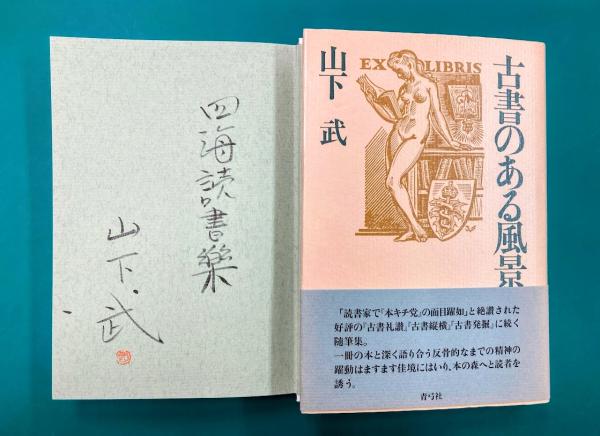 四海読書樂
山下武
EX LIBRIS
古書のある風景
山下 武
「読書家で『本キチ党』の面目躍如」と絶讃された
好評の『古書礼讃』『古書縦横』『古書発掘』に続く
随筆集。
一冊の本と深く語り合う反骨的なまでの精神の
躍動はますます佳境にはいり、本の森へと読者を
誘う。
青弓社